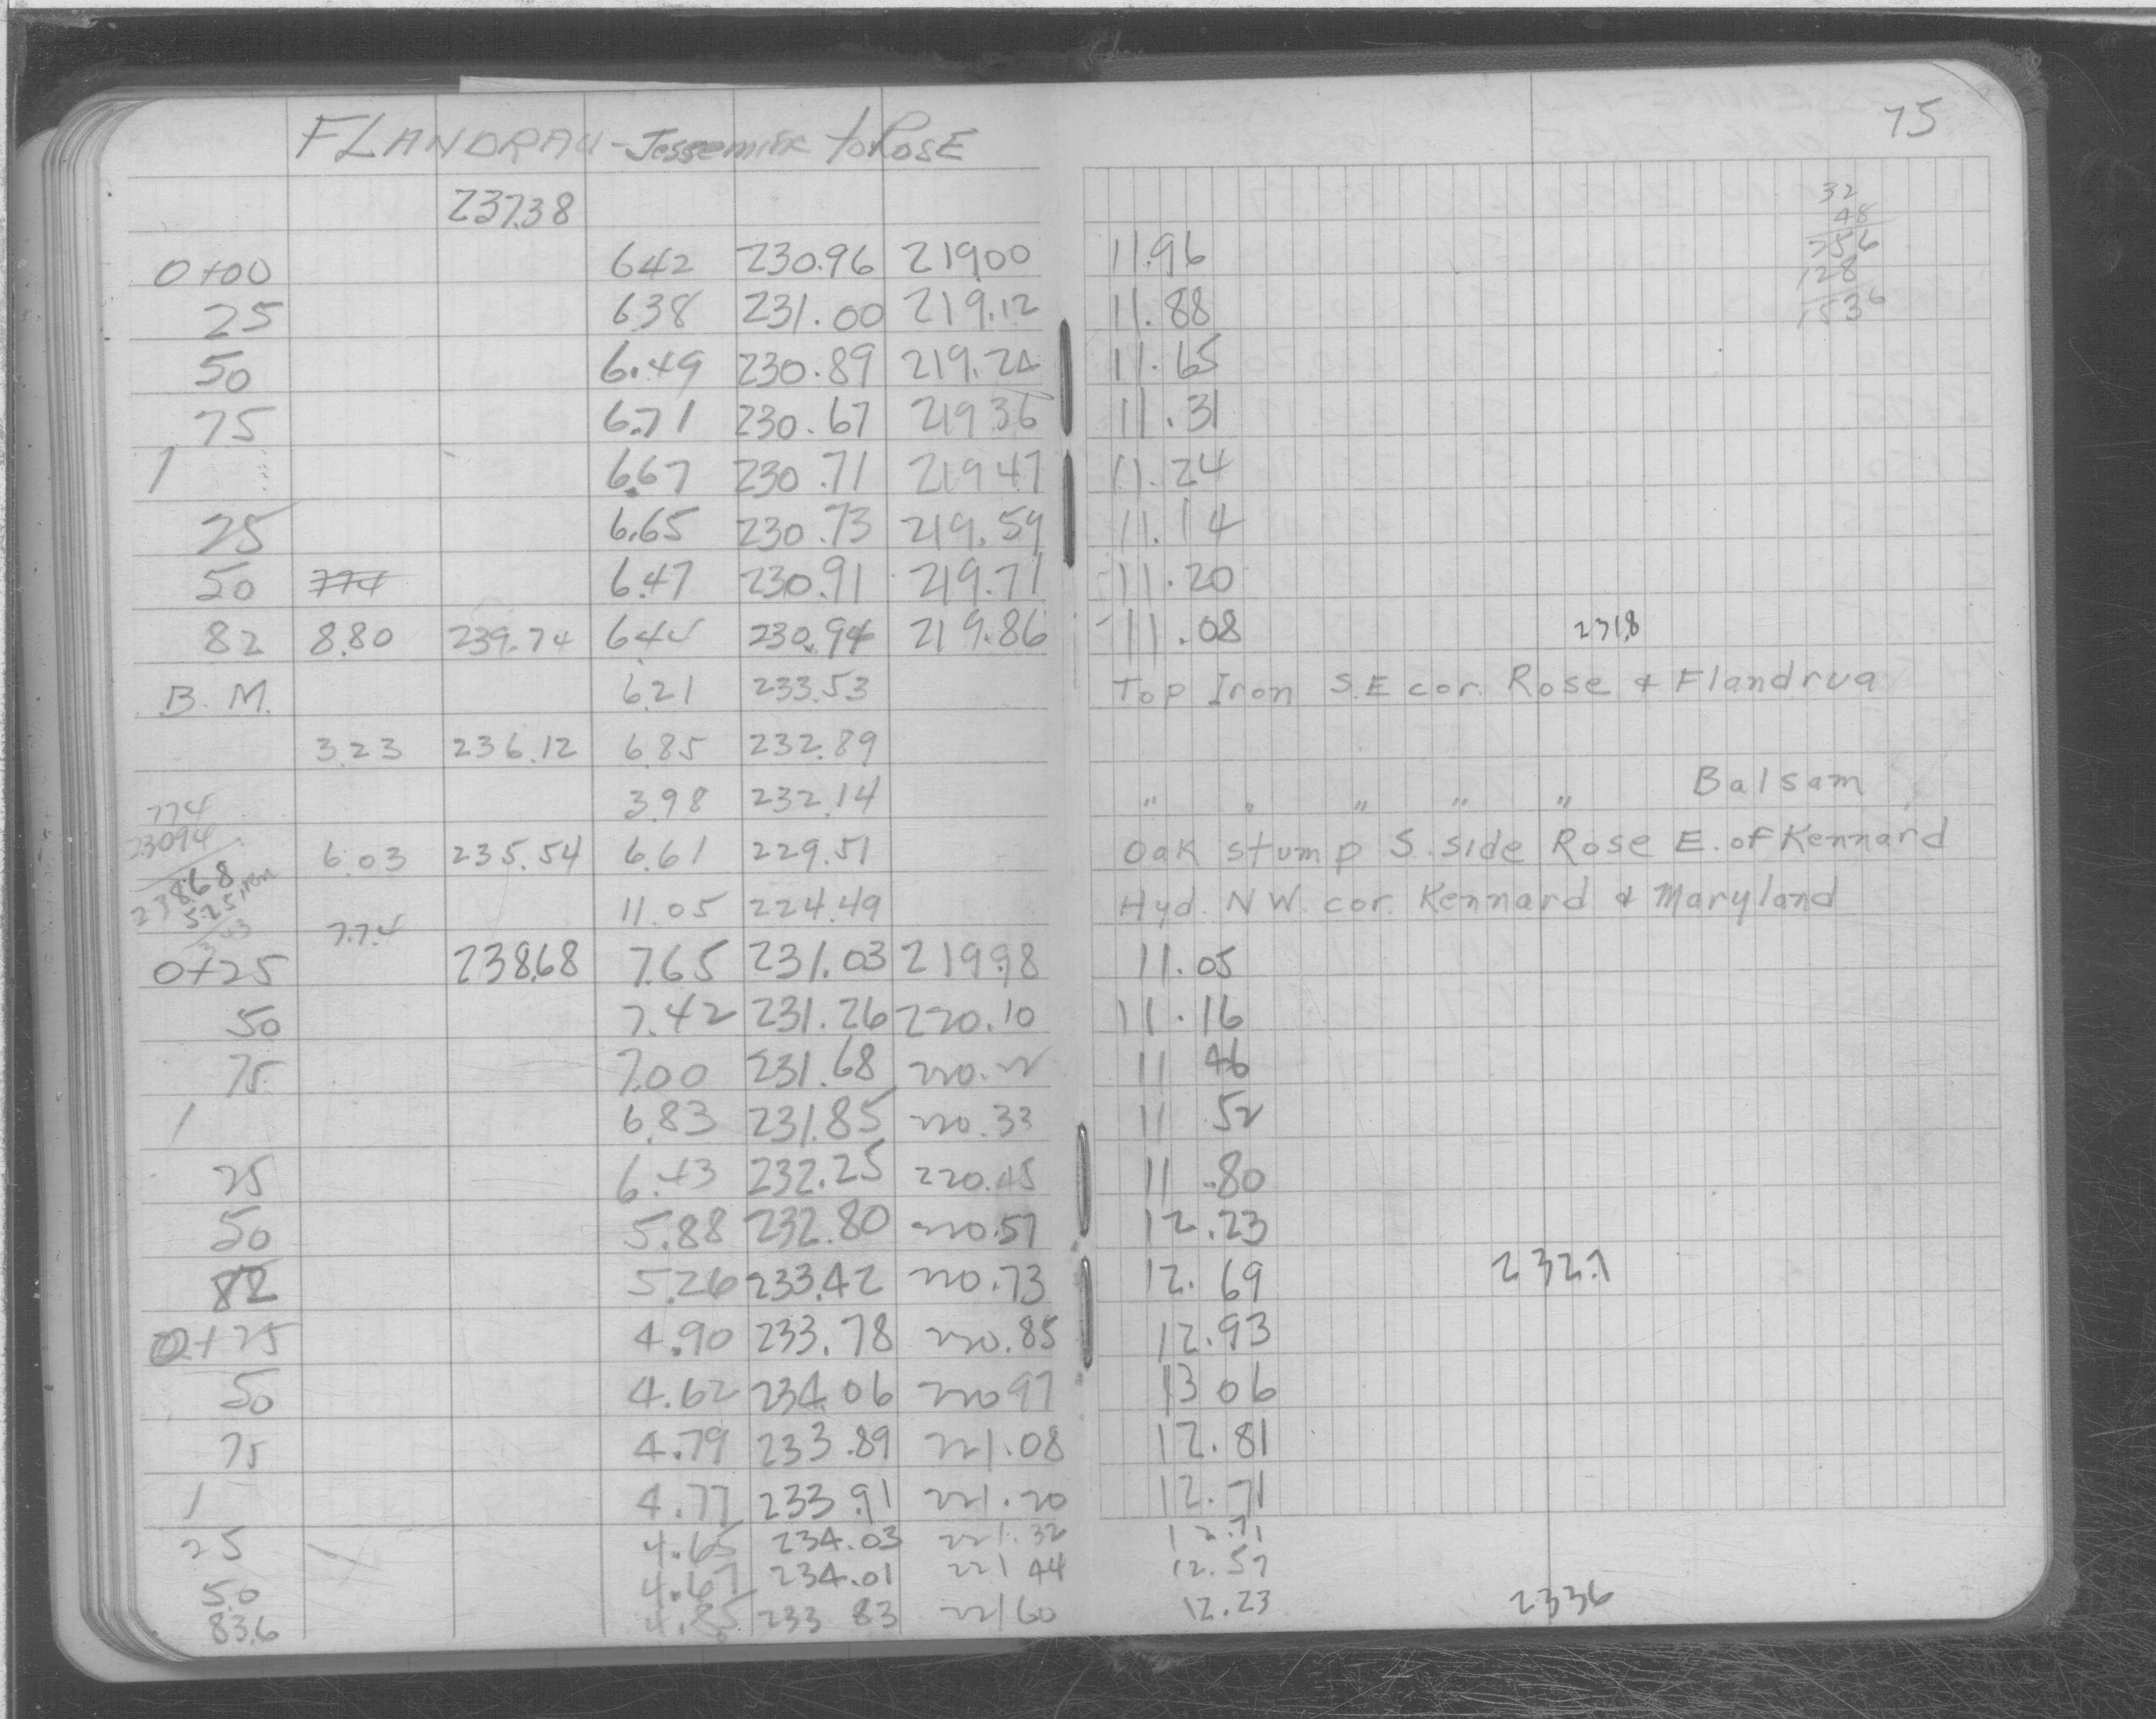 75
FLANDRAU - Jessemine to Rose
32
48
256
128
1536
237.38
0+00 6.42 230.96 219.00 11.96
25 6.38 231.00 219.12 11.88
50 6.49 230.89 219.24 11.65
75 6.71 230.67 219.36 11.31
1 6.67 230.71 219.47 11.24
25 6.65 230.73 219.59 11.14
50 774 6.47 230.91 219.71 11.20
82 8.80 239.74 6.44 230.94 219.86 11.08 231.8
B.M. 6.21 233.53 Top Iron S.E cor. Rose & Flandrua
3.23 236.12 6.85 232.89
3.98 232.14 " " " " " Balsam
774
23094
238.68
6.03 235.54 6.61 229.51 Oak stump S. side Rose E. of Kennard
11.05 224.49 Hyd. N W. cor. Kennard & Maryland
7.74
0+25 238.68 7.65 231.03 219.98 11.05
50 7.42 231.26 220.10 11.16
75 7.00 231.68 220.22 11 46
1 6.83 231.85 220.33 11 52
25 6.43 232.25 220.45 11.80
50 5.88 232.80 220.57 12.23
82 5.26 233.42 220.73 12.69 232.7
0+25 4.90 233.78 220.85 12.93
50 4.62 234.06 220 97 13 06
75 4.79 233.89 221.08 12.81
1 4.77 233 91 221.20 12.71
25 4.65 234.03 221.32 12.71
50 4.67 234.01 221 44 12.57
83.6 4.85 233 83 221 60 12.23 233 6